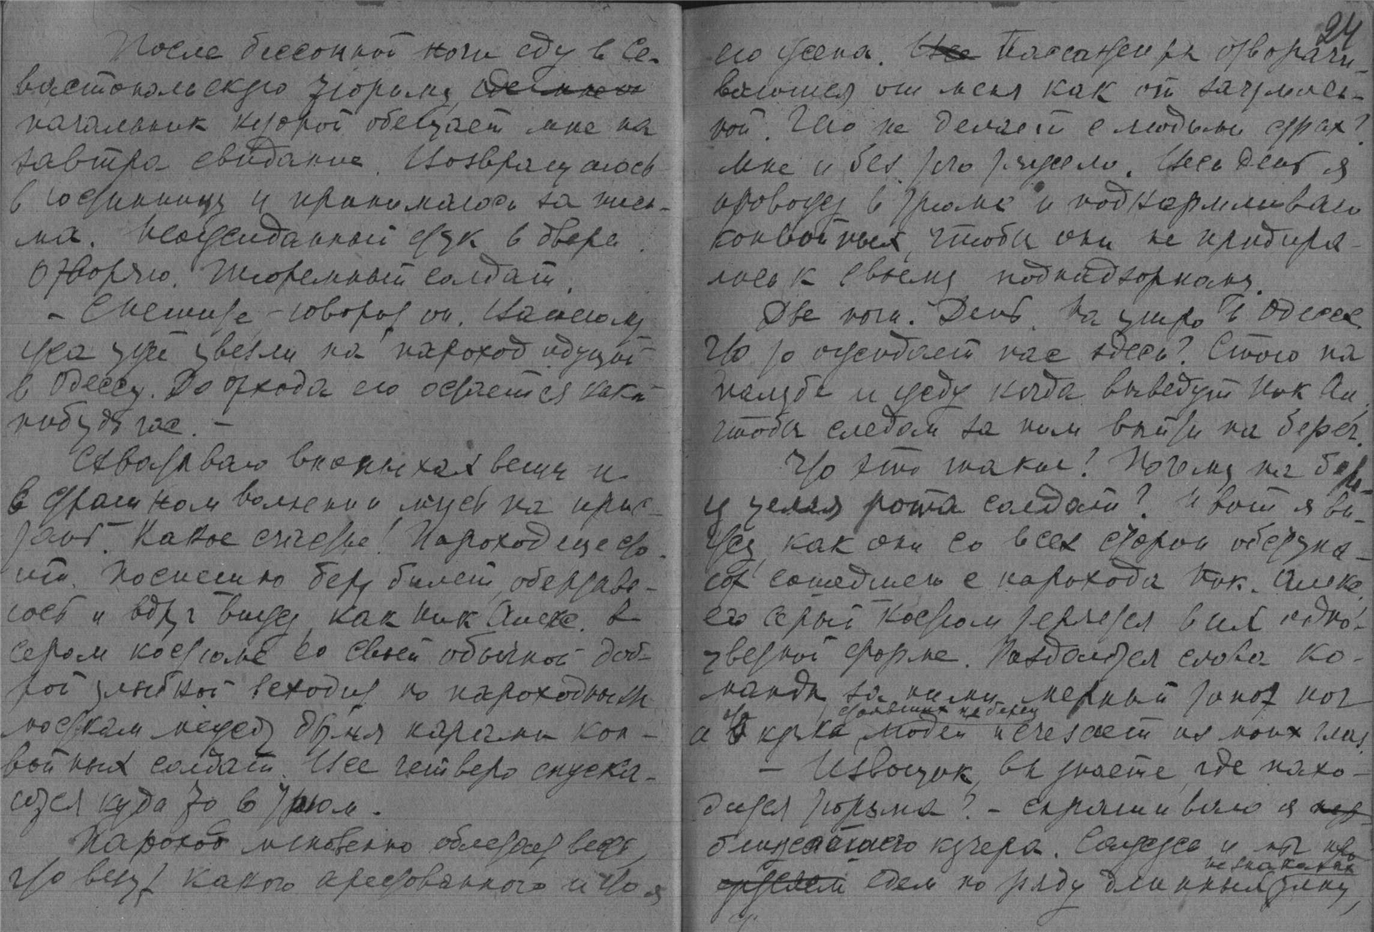 После бессонной ночи еду в Се-
вастопольскую тюрьму,
начальник которой обещает мне на
завтра свидание. Возвращаюсь
в гостинницу и принимаюсь за пись-
ма. Неожиданный стук в двери.
Отворяю. Тюремный солдат.
– Спешите – говорит он. Вашего му-
жа уже увезли на пароход идущий
в Одессу. До отхода его остается какой
нибудь час. –
Схватываю впопыхах вещи и
в страшном волнении мчусь на прис-
тань. Какое счастье! Пароход еще сто-
ит. Поспешно беру билет, оберты-
юсь и вдруг вижу, как Ник Алекс. в
сером костюме со своей обычной доб-
рой улыбкой всходит по пароходным
мосткам между двумя парами кон-
войных солдат. Все четверо спуска-
ются куда то в трюм.
Пароход мгновенно облетает весть,
что везут какого арестованного и что я
24
его жена. Все Пассажиры отворачи-
ваются от меня как от зачумлен-
ной. Чего не делает с людьми страх?
Мне и без того тяжело. Весь день я
провожу в трюме и подкармливаю
конвойных, чтобы они не придира-
лись к своему поднадзорному.
Две ночи. День. На утро в Одессе.
Что то ожидает нас здесь? Стою на
палубе и жду когда выведут Ник Ал.
чтобы следом за ним выйти на берег.
Что это такое! Почему на бере-
гу целая рота солдат? И вот я ви-
жу, как они со всех сторон обступа-
ют сошедшего с парохода Ник. Алекс.
его серый костюм теряется в их одно-
цветной форме. Раздаются слова ко-
манды за ними мерный топот ног
стоящих на берегу
и кучка людей исчезает из моих глаз.
– Извощик, вы знаете, где нахо-
дится тюрьма? – спрашиваю я
ближайшего кучера. Сажусь и мы
незнакомых
едем по ряду длинных улиц,